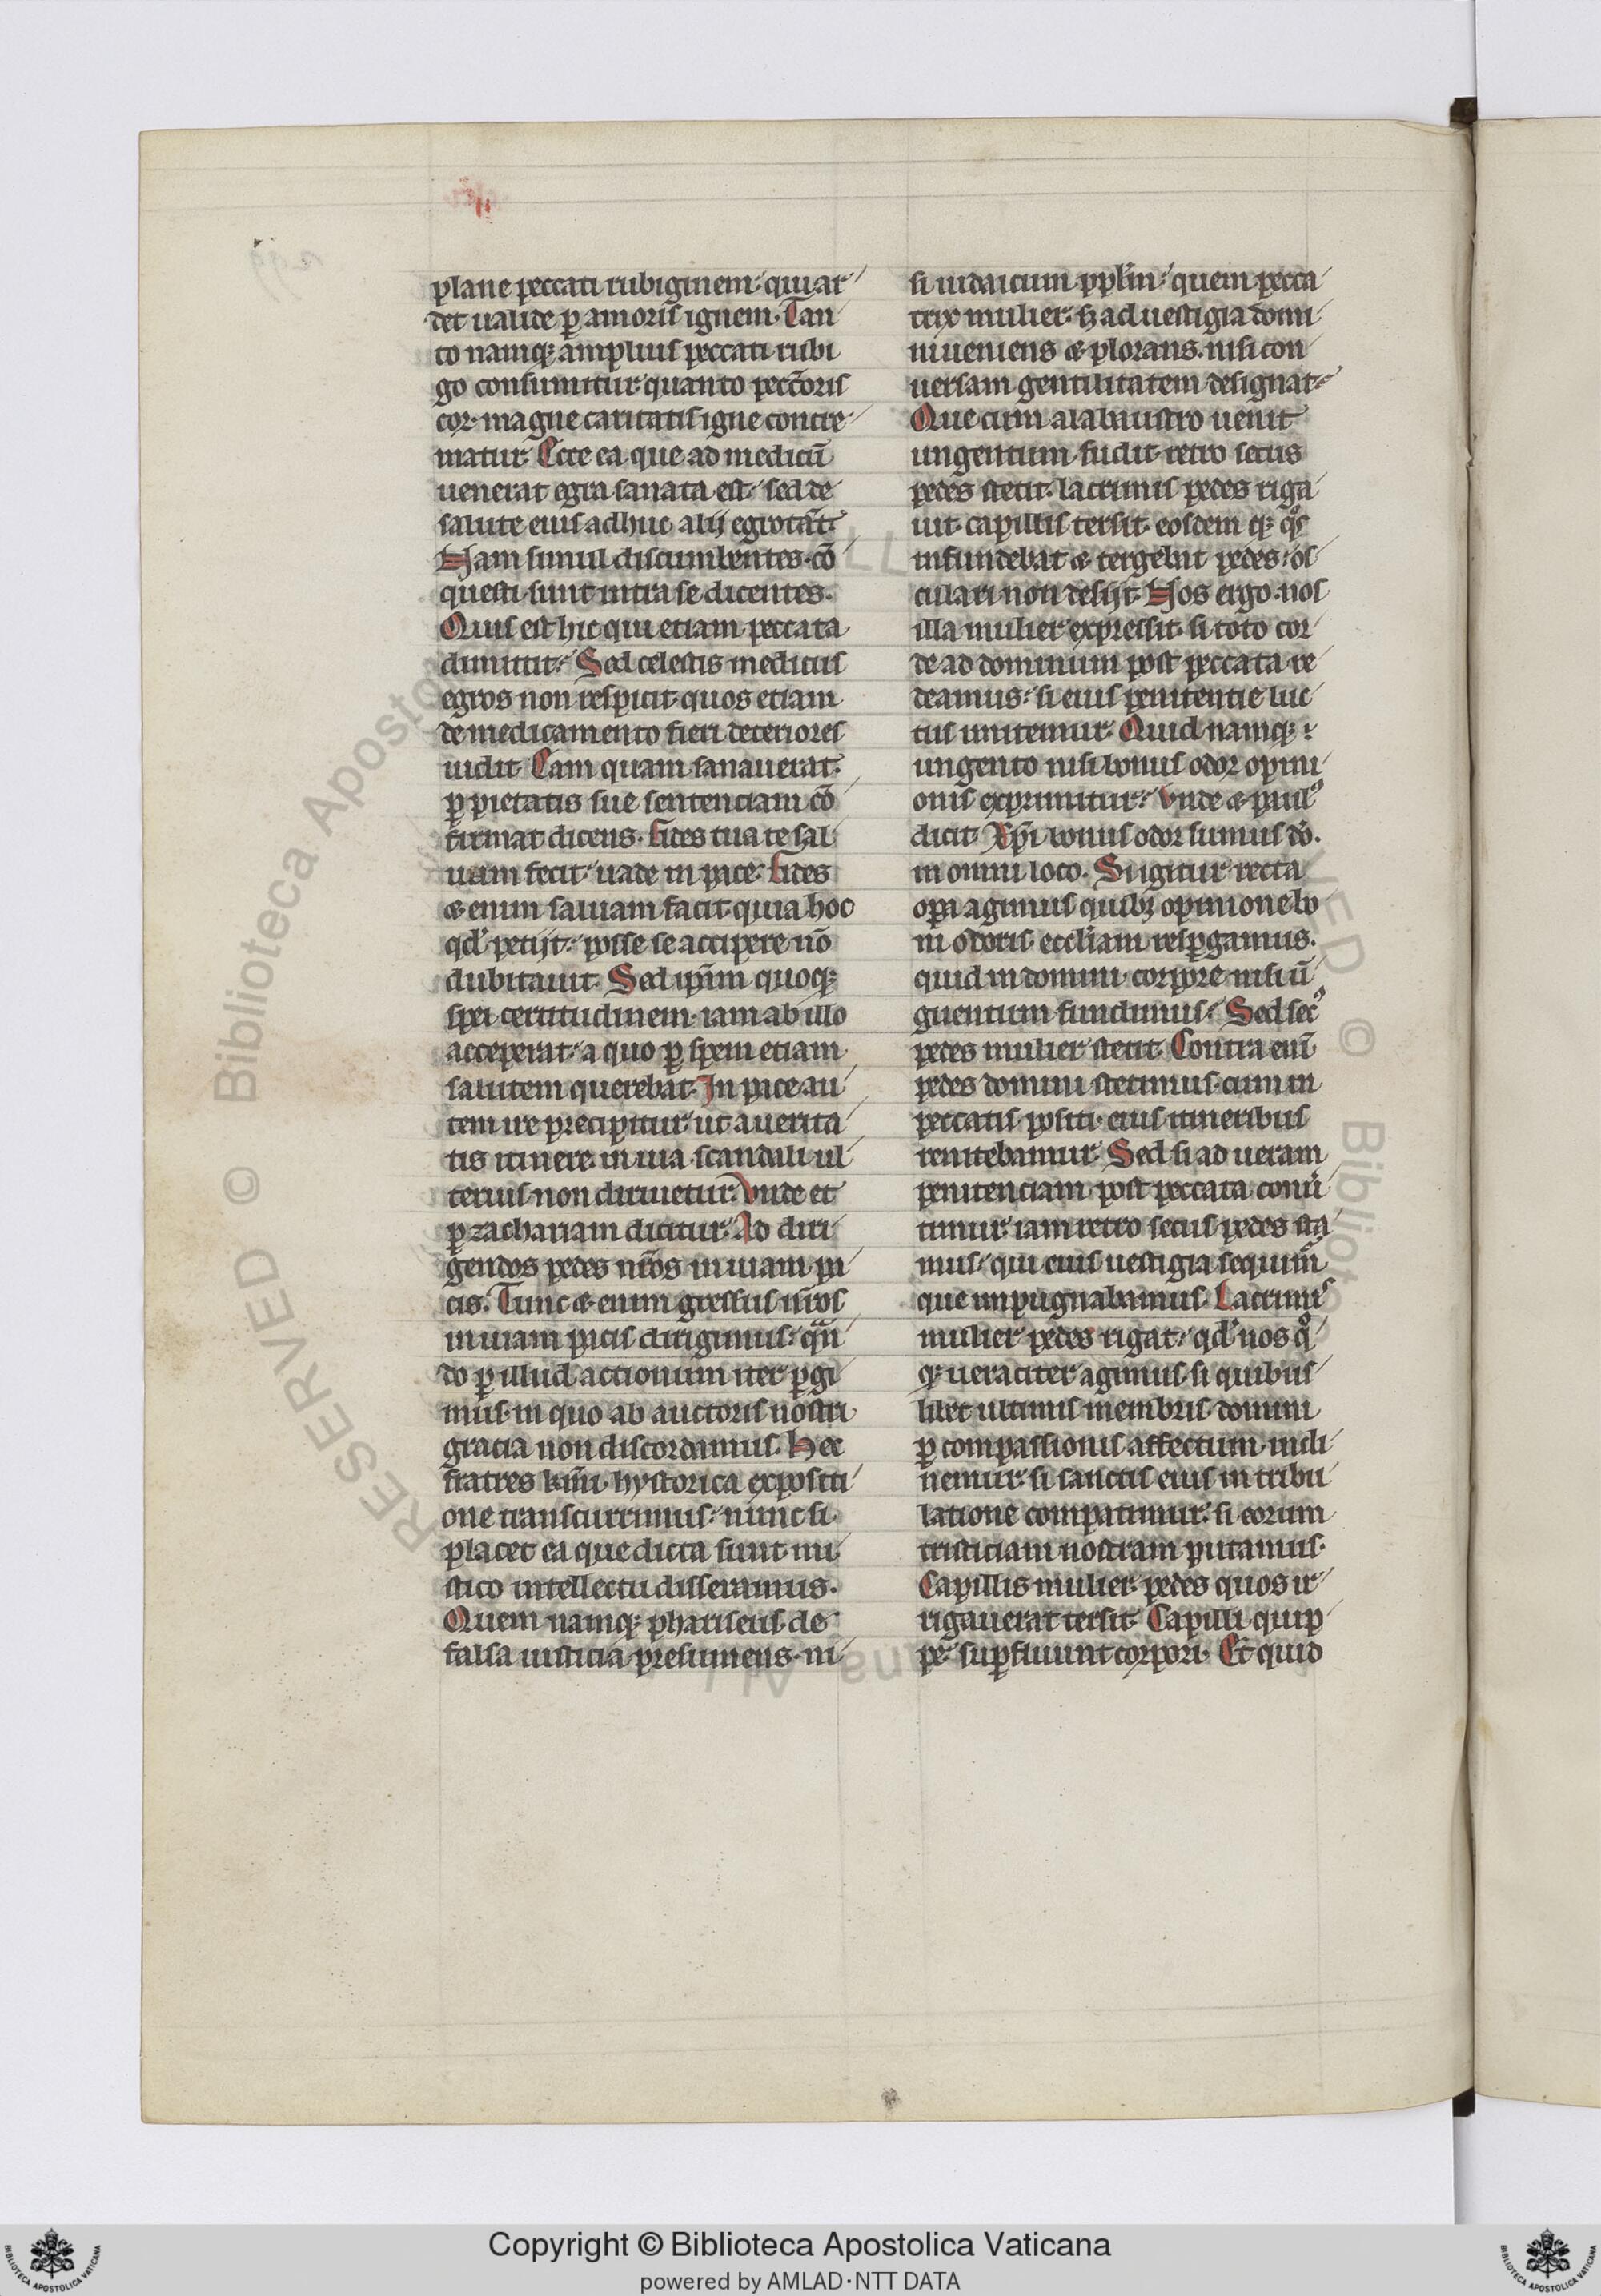 plane peccati rubiginem quia ar
det ualide ꝑ amoris ignem. Tan
to namqꝫ amplius peccati rubi
go consumitur quanto pecc̄oris
cor magne caritatis igne concre
matur. Ecce ea que ad medicū
uenerat egra sanata est. sed de
salute eius adhuc alij egrotāt
Nam simul discumbentes cō
questi sunt intra se dicentes.
Quis est hic qui etiam peccata
dimittit. Sed celestis medicus
egros non respicit quos etiam
de medicamento fieri deteriores
uidit. Eam quam sanauerat
ꝑ pietatis sue sentenciam cō
firmat dicens. Fides tua te sal
uam fecit uade in pace. Fides
& enim saluam facit quia hoc
qd' petijt posse se accipere nō
dubitauit. Sed ip̄am quoqꝫ
spei certitudinem iam ab illo
acceperat a quo ꝑ spem etiam
salutem querebat. In pace au
tem ire precipitur ut a uerita
tis itinere in uia scandali ul
terius non diriuetur. Vnde et
ꝑ zachariam dicitur. Ad diri
gendos pedes nr̄os in uiam pa
cis. Tunc & enim gressus nr̄os
in uiam pacis dirigimus qn̄
do ꝑ illud actionum iter ꝑgi
mus in quo ab auctoris nostri
gracia non discordamus. Hec
fratres km̄i hystorica expositi
one transcurrimus. nunc si
placet ea que dicta sunt mi
stico intellectu disseramus.
Quem namqꝫ phariseus de
falsa iusticia presumens ni
si iudaicum ppl'm quem pecca
trix mulier sꝫ ad uestigia domi
ni ueniens & plorans. nisi con
uersam gentilitatem designat
Que cum alabaustro uenit
ungentum fudit retro secus
pedes stetit lacrimis pedes riga
uit capillis tersit eosdem qꝫ q°s
infundebat & tergebat pedes os
culari non desijt. Nos ergo nos
illa mulier expressit si toto cor
de ad dominum post peccata re
deamus si eius penitentie luc
tus imitemur. Quid namqꝫ
ungento nisi bonus odor opini
onis exprimitur. Vnde & paul⁹
dicit. Xp̄i bonus odor sumus dō.
in omni loco. Si igitur recta
oꝑa agimus quibꝫ opinione bo
ni odoris eccl'iam respgamus.
quid in domini corpore nisi ū
guentum fundimus. Sed sec⁹
pedes mulier stetit. Contra eni̅
pedes domini stetimus cum in
peccatis positi eius itineribus
renitebamur. Sed si ad ueram
penitenciam post peccata conū
timur iam retro secus pedes sta
mus qui eius uestigia sequim̄
que impugnabamus. Lacrimis
mulier pedes rigat qd' nos q°
qꝫ ueraciter agimus si quibus
libet ultimis membris domini
ꝑ compassionis affectum incli
nemur si sanctis eius in tribu
latione compatimur si eorum
tristiciam nostram putamus.
Capillis mulier pedes quos ir
rigauerat tersit. Capilli quip
pe suꝑfluunt corpori. Et quid
Copyright © Biblioteca Apostolica Vaticana
powered by AMLAD·NTT DATA